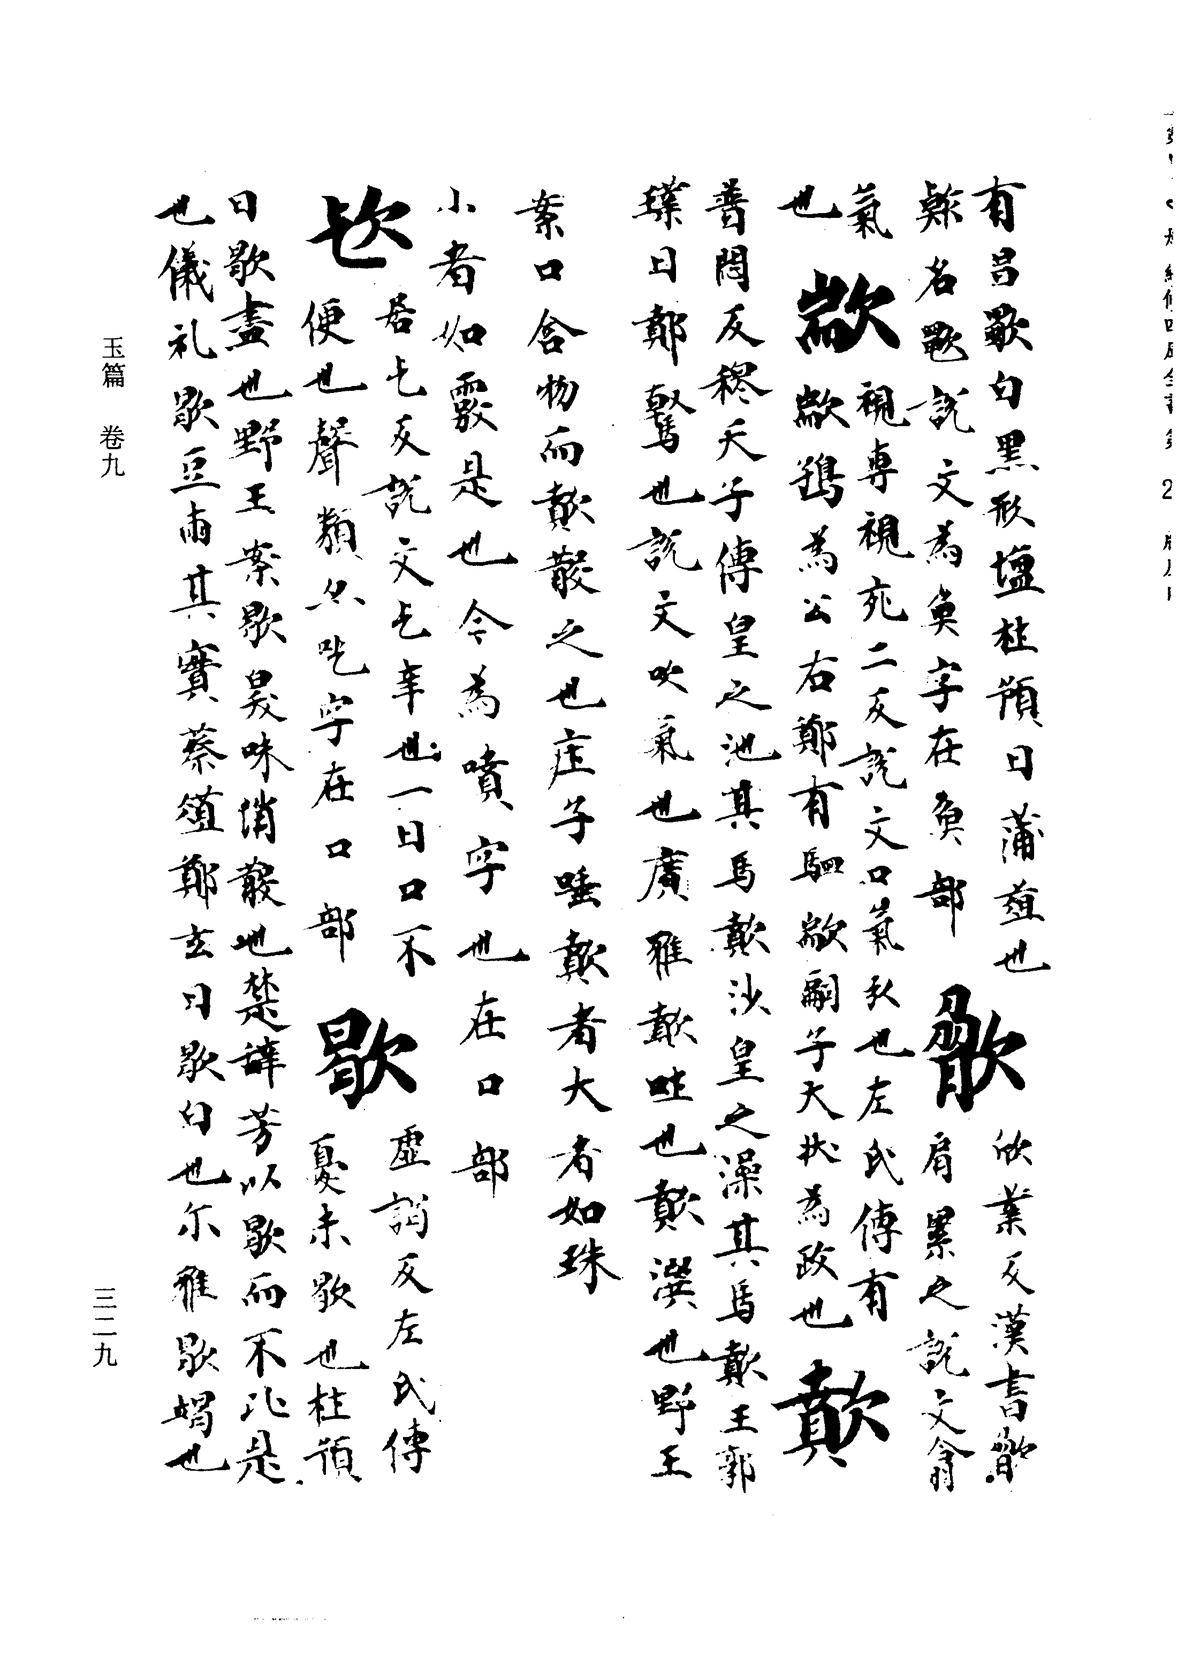 有昌歜白黑形塩杜預曰蒲葅也
歔欣業反漢書歙
名歜說文為奐字在奐部
肩累之說文翕
氣
視専視死二反說文口氣引也左氏傳有
也
歂歂鵶為公右鄭有駟歂嗣子大状為政也歕
普悶反穆天子傳皇之池其馬歕沙皇之澤其馬歕玉郭
璞曰鄭驁也說文吹氣也廣雅歕吐也歕潠也野王
案口含物而歕散之也庄子唾歕者大者如珠
小者如霧是也今為噴字也在口部
㰟居乞反說文㰟幸也一曰口不
便也聲類亦吃字在口部
歇虛謁反左氏傳
憂未歇也杜預
曰歇盡也野王案歇臭味消散也楚辞芳以歇而不比是
也儀礼歇豆雨其實蔡葅鄭玄曰歇白也尓雅歇竭也
玉篇 卷九
三二九